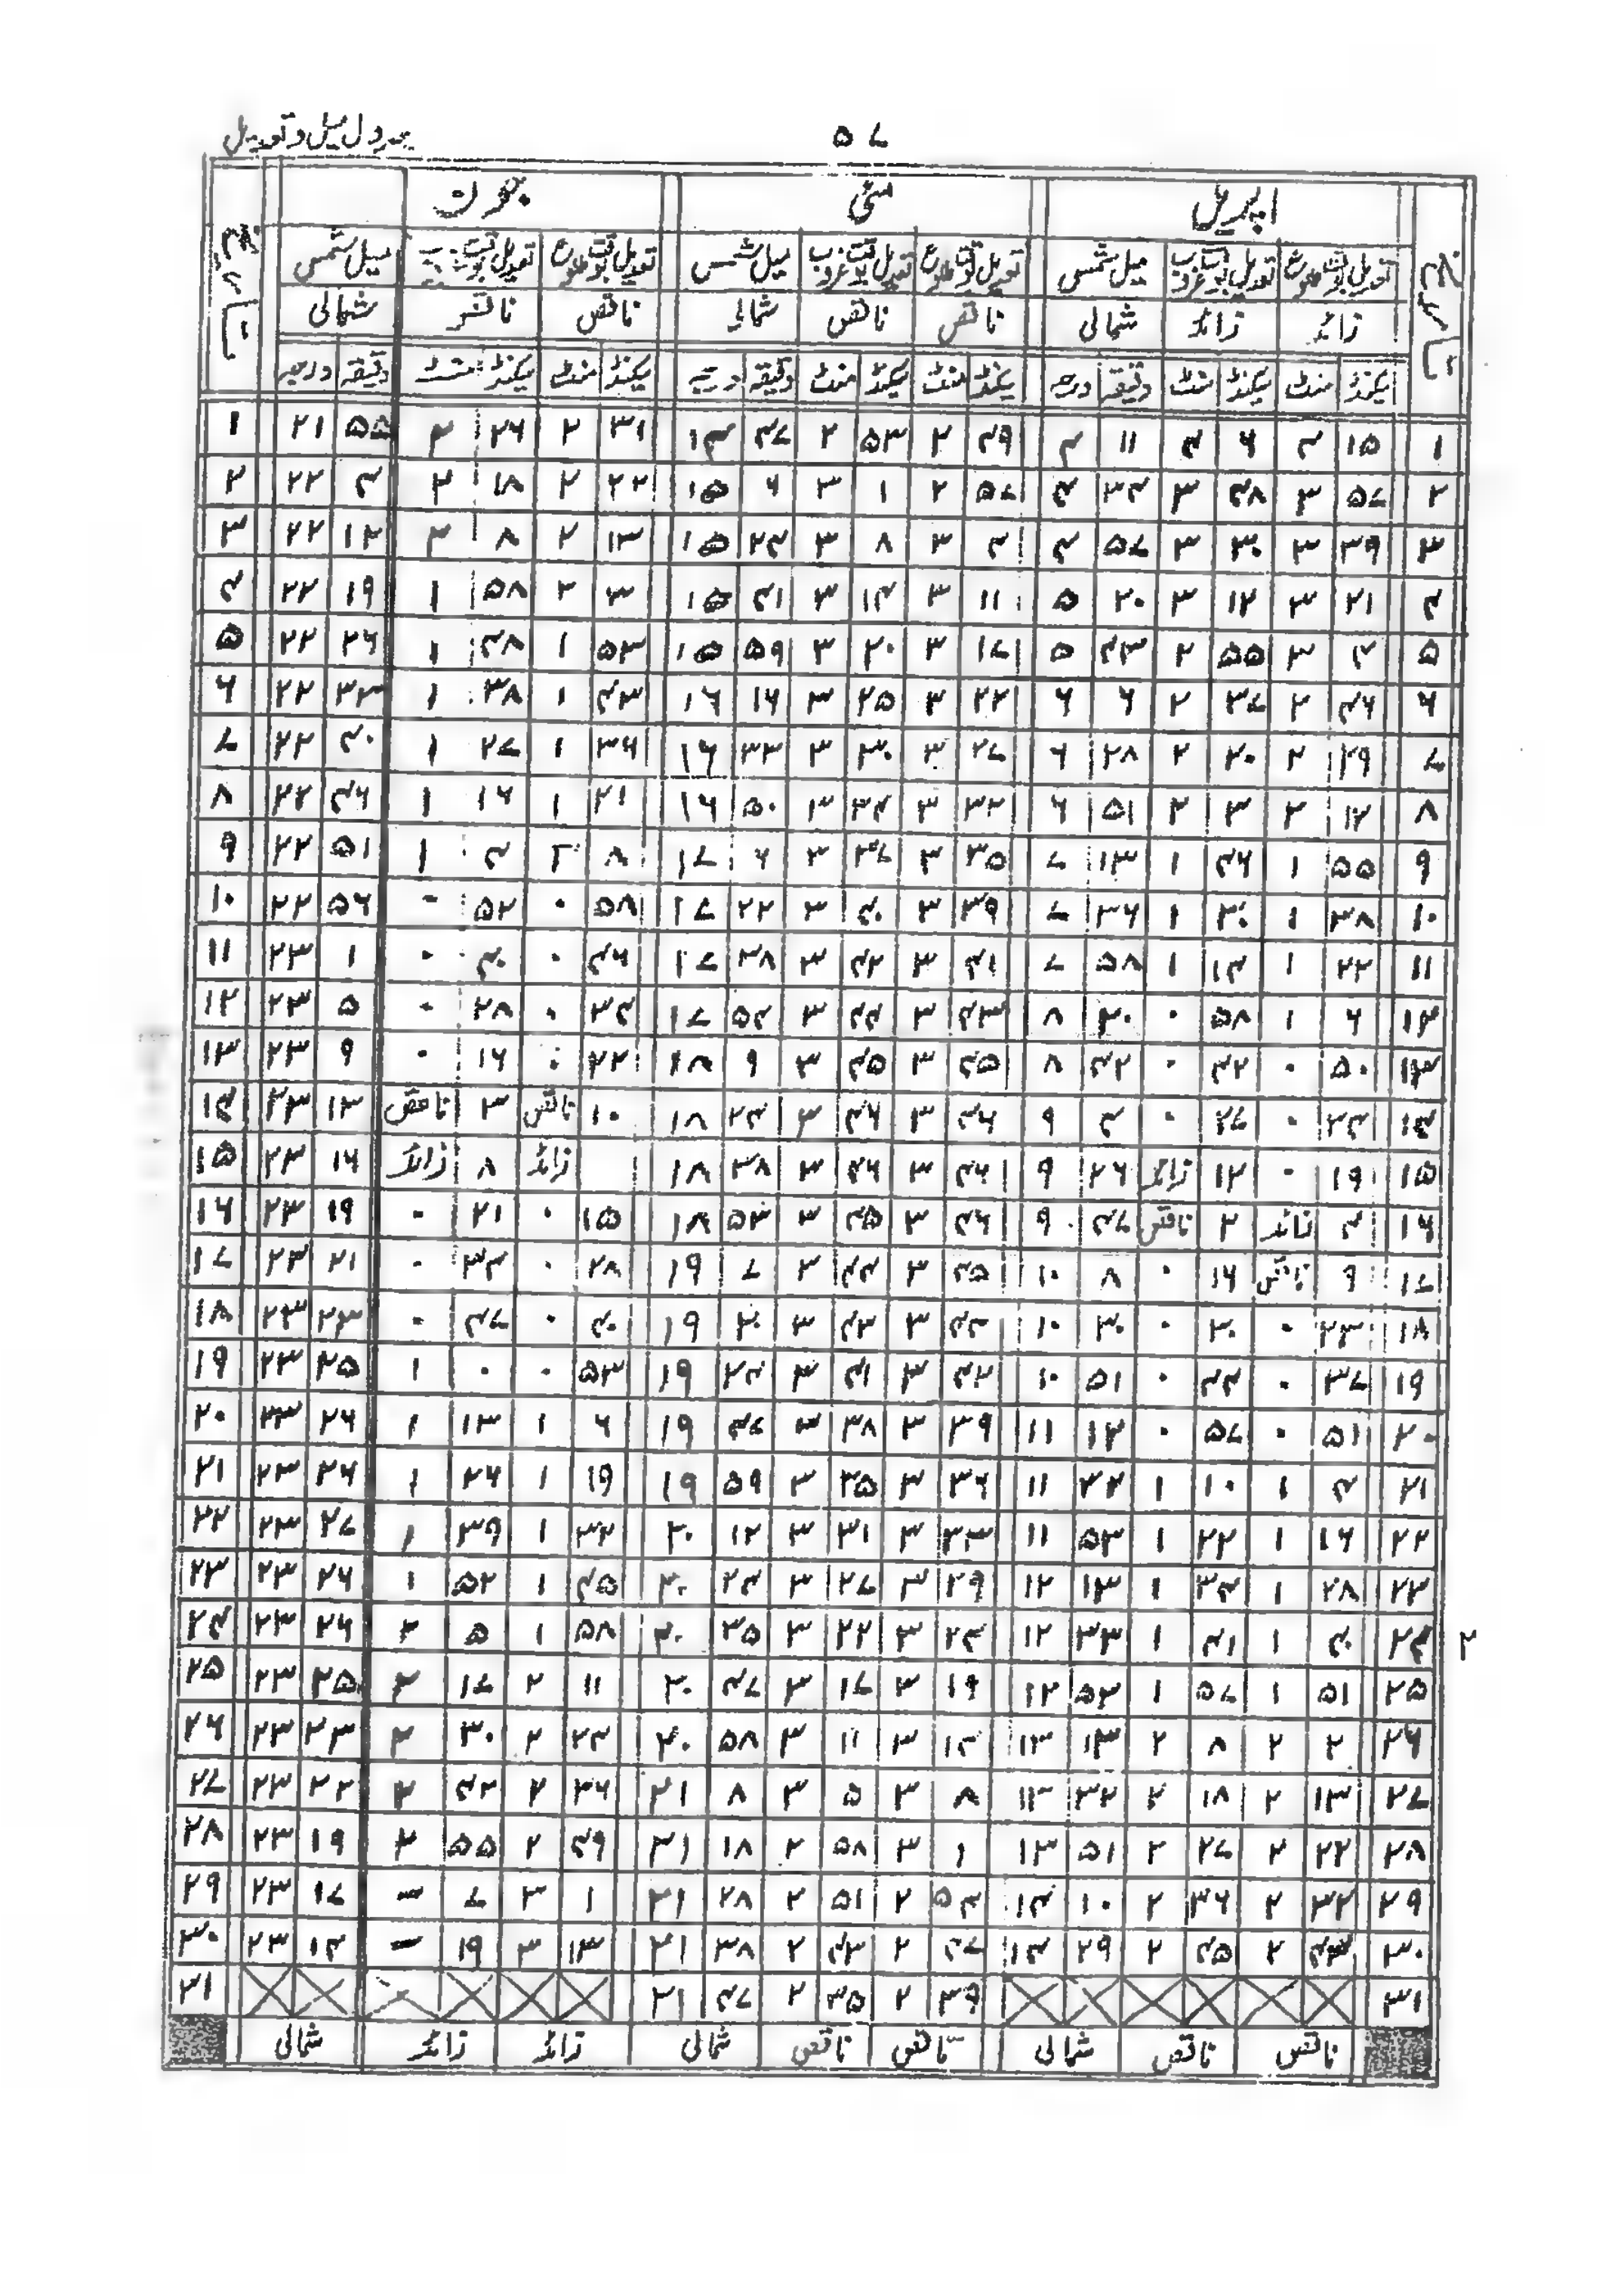 ۵۷
جدول میل و تعدیل
تاریخ اپریل مئی جون تاریخ
تعدیل بوقت طلوع تعدیل بوقت غروب میل شمس تعدیل بوقت طلوع تعدیل بوقت غروب میل شمس تعدیل بوقت طلوع تعدیل بوقت غروب میل شمس
زائد زائد شمالی ناقص ناقص شمالی ناقص ناقص شمالی
سیکنڈ منٹ سیکنڈ منٹ دقیقہ درجہ سیکنڈ منٹ سیکنڈ منٹ دقیقہ درجہ سیکنڈ منٹ سیکنڈ منٹ دقیقہ درجہ
۱ ۱۵ ۴ ۶ ۴ ۱۱ ۴ ۴۹ ۲ ۵۳ ۲ ۴۷ ۱۴ ۳۱ ۲ ۲۶ ۲ ۵۵ ۲۱ ۱
۲ ۵۷ ۳ ۴۸ ۳ ۳۴ ۴ ۵۷ ۲ ۱ ۳ ۶ ۱۵ ۲۲ ۲ ۱۸ ۲ ۴ ۲۲ ۲
۳ ۳۹ ۳ ۳۰ ۳ ۵۷ ۴ ۴ ۳ ۸ ۳ ۲۴ ۱۵ ۱۳ ۲ ۸ ۲ ۱۲ ۲۲ ۳
۴ ۲۱ ۳ ۱۲ ۳ ۲۰ ۵ ۱۱ ۳ ۱۴ ۳ ۴۱ ۱۵ ۳ ۲ ۵۸ ۱ ۱۹ ۲۲ ۴
۵ ۴ ۳ ۵۵ ۲ ۴۳ ۵ ۱۷ ۳ ۲۰ ۳ ۵۹ ۱۵ ۵۳ ۱ ۴۸ ۱ ۲۶ ۲۲ ۵
۶ ۴۶ ۲ ۳۷ ۲ ۶ ۶ ۲۲ ۳ ۲۵ ۳ ۱۶ ۱۶ ۴۳ ۱ ۳۸ ۱ ۳۳ ۲۲ ۶
۷ ۲۹ ۲ ۲۰ ۲ ۲۸ ۶ ۲۷ ۳ ۳۰ ۳ ۳۳ ۱۶ ۳۶ ۱ ۲۷ ۱ ۴۰ ۲۲ ۷
۸ ۱۲ ۲ ۳ ۲ ۵۱ ۶ ۳۲ ۳ ۳۴ ۳ ۵۰ ۱۶ ۲۱ ۱ ۱۶ ۱ ۴۶ ۲۲ ۸
۹ ۵۵ ۱ ۴۶ ۱ ۱۳ ۷ ۳۵ ۳ ۳۷ ۳ ۶ ۱۷ ۸ ۴ ۱ ۵۱ ۲۲ ۹
۱۰ ۳۸ ۱ ۳۰ ۱ ۳۶ ۷ ۳۹ ۳ ۴۰ ۳ ۲۲ ۱۷ ۵۸ ۰ ۵۲ ۰ ۵۶ ۲۲ ۱۰
۱۱ ۲۲ ۱ ۱۴ ۱ ۵۸ ۷ ۴۱ ۳ ۴۲ ۳ ۳۸ ۱۷ ۴۶ ۰ ۴۰ ۰ ۱ ۲۳ ۱۱
۱۲ ۶ ۱ ۵۸ ۰ ۲۰ ۸ ۴۳ ۳ ۴۴ ۳ ۵۴ ۱۷ ۳۴ ۰ ۲۸ ۰ ۵ ۲۳ ۱۲
۱۳ ۵۰ ۰ ۴۲ ۰ ۴۲ ۸ ۴۵ ۳ ۴۵ ۳ ۹ ۱۸ ۲۲ ۰ ۱۶ ۰ ۹ ۲۳ ۱۳
۱۴ ۳۴ ۰ ۲۷ ۰ ۴ ۹ ۴۶ ۳ ۴۶ ۳ ۲۴ ۱۸ ۱۰ ناقص ۳ ناقص ۱۳ ۲۳ ۱۴
۱۵ ۱۹ ۰ ۱۲ زائد ۲۶ ۹ ۴۶ ۳ ۴۶ ۳ ۳۸ ۱۸ زائد ۸ زائد ۱۶ ۲۳ ۱۵
۱۶ ۴ زائد ۲ ناقص ۴۷ ۹ ۴۶ ۳ ۴۵ ۳ ۵۳ ۱۸ ۱۵ ۰ ۲۱ ۰ ۱۹ ۲۳ ۱۶
۱۷ ۹ ناقص ۱۶ ۰ ۸ ۱۰ ۴۵ ۳ ۴۴ ۳ ۷ ۱۹ ۲۸ ۰ ۳۴ ۰ ۲۱ ۲۳ ۱۷
۱۸ ۲۳ ۰ ۳۰ ۰ ۳۰ ۱۰ ۴۴ ۳ ۴۳ ۳ ۲۰ ۱۹ ۴۰ ۰ ۴۷ ۰ ۲۳ ۲۳ ۱۸
۱۹ ۳۷ ۰ ۴۴ ۰ ۵۱ ۱۰ ۴۲ ۳ ۴۱ ۳ ۳۴ ۱۹ ۵۳ ۰ ۰ ۱ ۲۵ ۲۳ ۱۹
۲۰ ۵۱ ۰ ۵۷ ۰ ۱۲ ۱۱ ۳۹ ۳ ۳۸ ۳ ۴۷ ۱۹ ۶ ۱ ۱۳ ۱ ۲۶ ۲۳ ۲۰
۲۱ ۴ ۱ ۱۰ ۱ ۳۲ ۱۱ ۳۶ ۳ ۳۵ ۳ ۵۹ ۱۹ ۱۹ ۱ ۲۶ ۱ ۲۶ ۲۳ ۲۱
۲۲ ۱۶ ۱ ۲۲ ۱ ۵۳ ۱۱ ۳۳ ۳ ۳۱ ۳ ۱۲ ۲۰ ۳۲ ۱ ۳۹ ۱ ۲۷ ۲۳ ۲۲
۲۳ ۲۸ ۱ ۳۴ ۱ ۱۳ ۱۲ ۲۹ ۳ ۲۷ ۳ ۲۴ ۲۰ ۴۵ ۱ ۵۲ ۱ ۲۶ ۲۳ ۲۳
۲ ۲۴ ۴۰ ۱ ۴۱ ۱ ۳۳ ۱۲ ۲۴ ۳ ۲۲ ۳ ۳۵ ۲۰ ۵۸ ۱ ۵ ۲ ۲۶ ۲۳ ۲۴
۲۵ ۵۱ ۱ ۵۷ ۱ ۵۳ ۱۲ ۱۹ ۳ ۱۷ ۳ ۴۷ ۲۰ ۱۱ ۲ ۱۷ ۲ ۲۵ ۲۳ ۲۵
۲۶ ۲ ۲ ۸ ۲ ۱۳ ۱۳ ۱۴ ۳ ۱۱ ۳ ۵۸ ۲۰ ۲۴ ۲ ۳۰ ۲ ۲۳ ۲۳ ۲۶
۲۷ ۱۳ ۲ ۱۸ ۲ ۳۲ ۱۳ ۸ ۳ ۵ ۳ ۸ ۲۱ ۳۶ ۲ ۴۲ ۲ ۲۲ ۲۳ ۲۷
۲۸ ۲۲ ۲ ۲۷ ۲ ۵۱ ۱۳ ۱ ۳ ۵۸ ۲ ۱۸ ۲۱ ۴۹ ۲ ۵۵ ۲ ۱۹ ۲۳ ۲۸
۲۹ ۳۲ ۲ ۳۶ ۲ ۱۰ ۱۴ ۵۴ ۲ ۵۱ ۲ ۲۸ ۲۱ ۱ ۳ ۷ ۳ ۱۷ ۲۳ ۲۹
۳۰ ۴۳ ۲ ۴۵ ۲ ۲۹ ۱۴ ۴۷ ۲ ۴۳ ۲ ۳۸ ۲۱ ۱۳ ۳ ۱۹ ۳ ۱۴ ۲۳ ۳۰
۳۱ ۳۹ ۲ ۳۵ ۲ ۴۷ ۲۱ ۳۱
ناقص ناقص شمالی ناقص ناقص شمالی زائد زائد شمالی